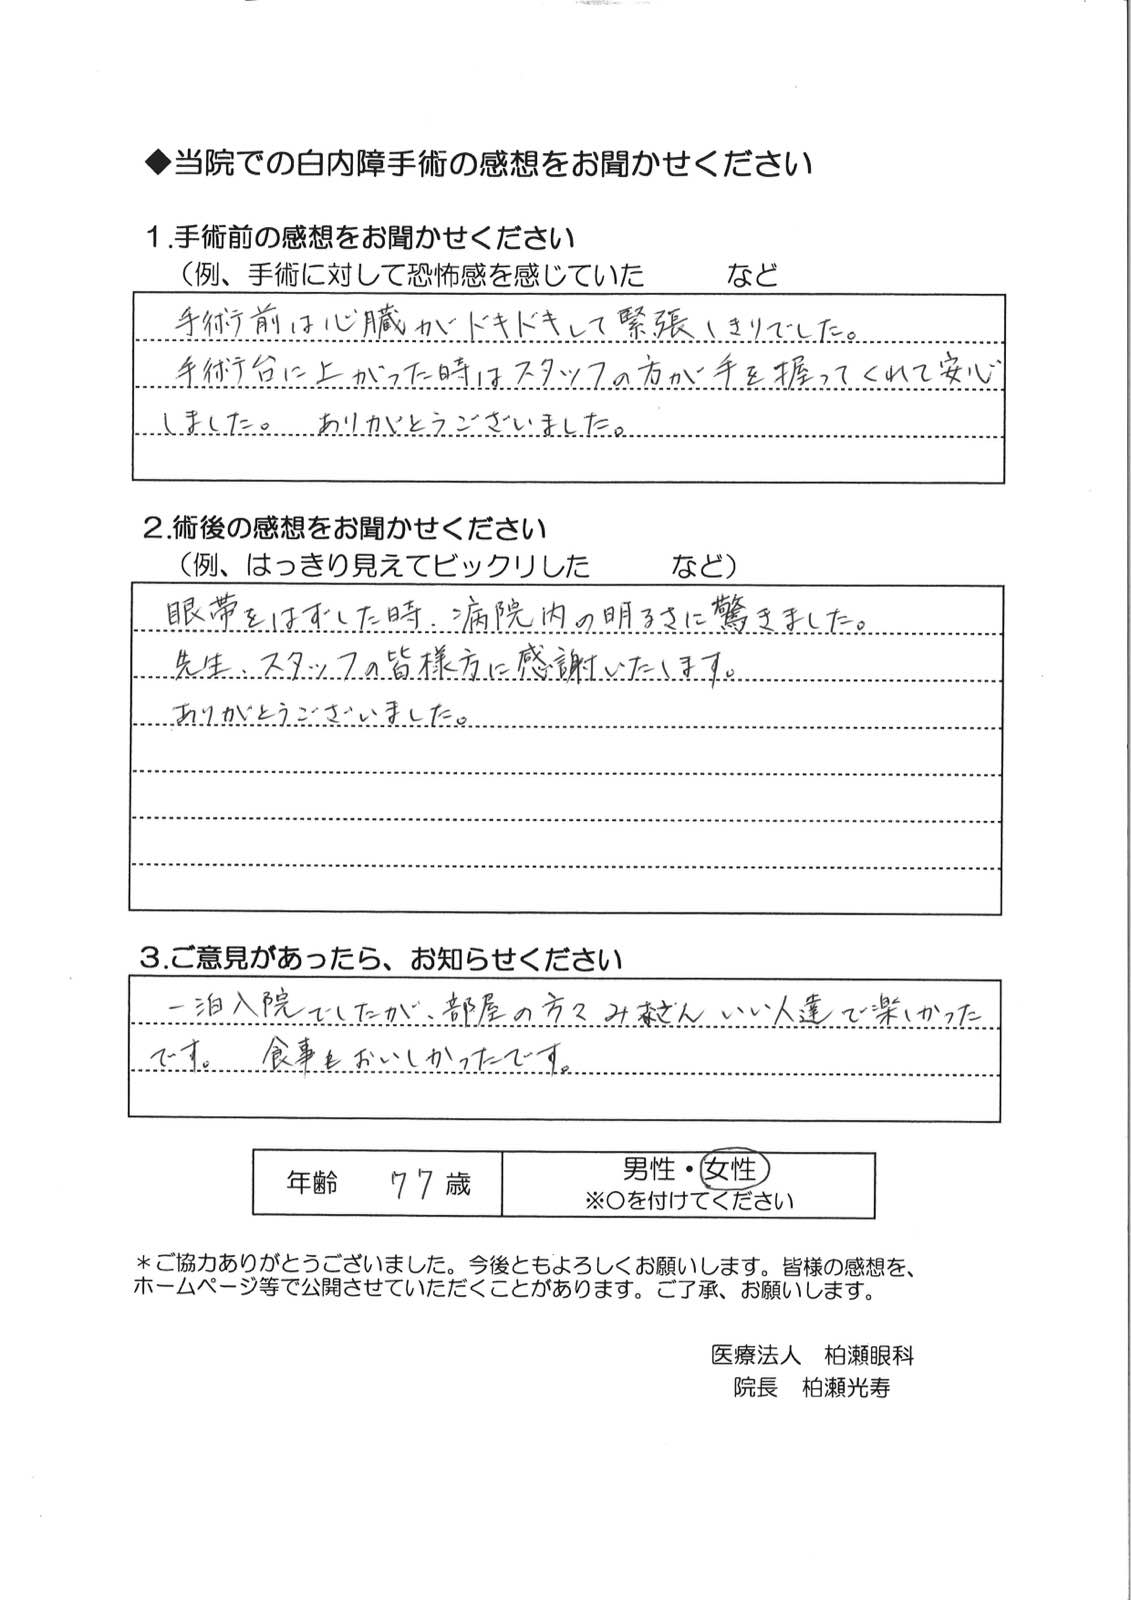 ◆当院での白内障手術の感想をお聞かせください
1.手術前の感想をお聞かせください
(例、手術に対して恐怖感を感じていた　　　など
手術前は心臓がドキドキして緊張しきりでした。
手術台に上がった時はスタッフの方が手を握ってくれて安心
しました。　ありがとうございました。
2.術後の感想をお聞かせください
(例、はっきり見えてビックリした　　　など)
眼帯をはずした時、病院内の明るさに驚きました。
先生、スタッフの皆様方に感謝いたします。
ありがとうございました。
3.ご意見があったら、お知らせください
一泊入院でしたが、部屋の方々みなさんいい人達で楽しかった
です。　食事もおいしかったです。
年齢　77歳　男性・女性
※〇を付けてください
*ご協力ありがとうございました。今後ともよろしくお願いします。皆様の感想を、
ホームページ等で公開させていただくことがあります。ご了承、お願いします。
医療法人　柏瀬眼科
院長　柏瀬光寿